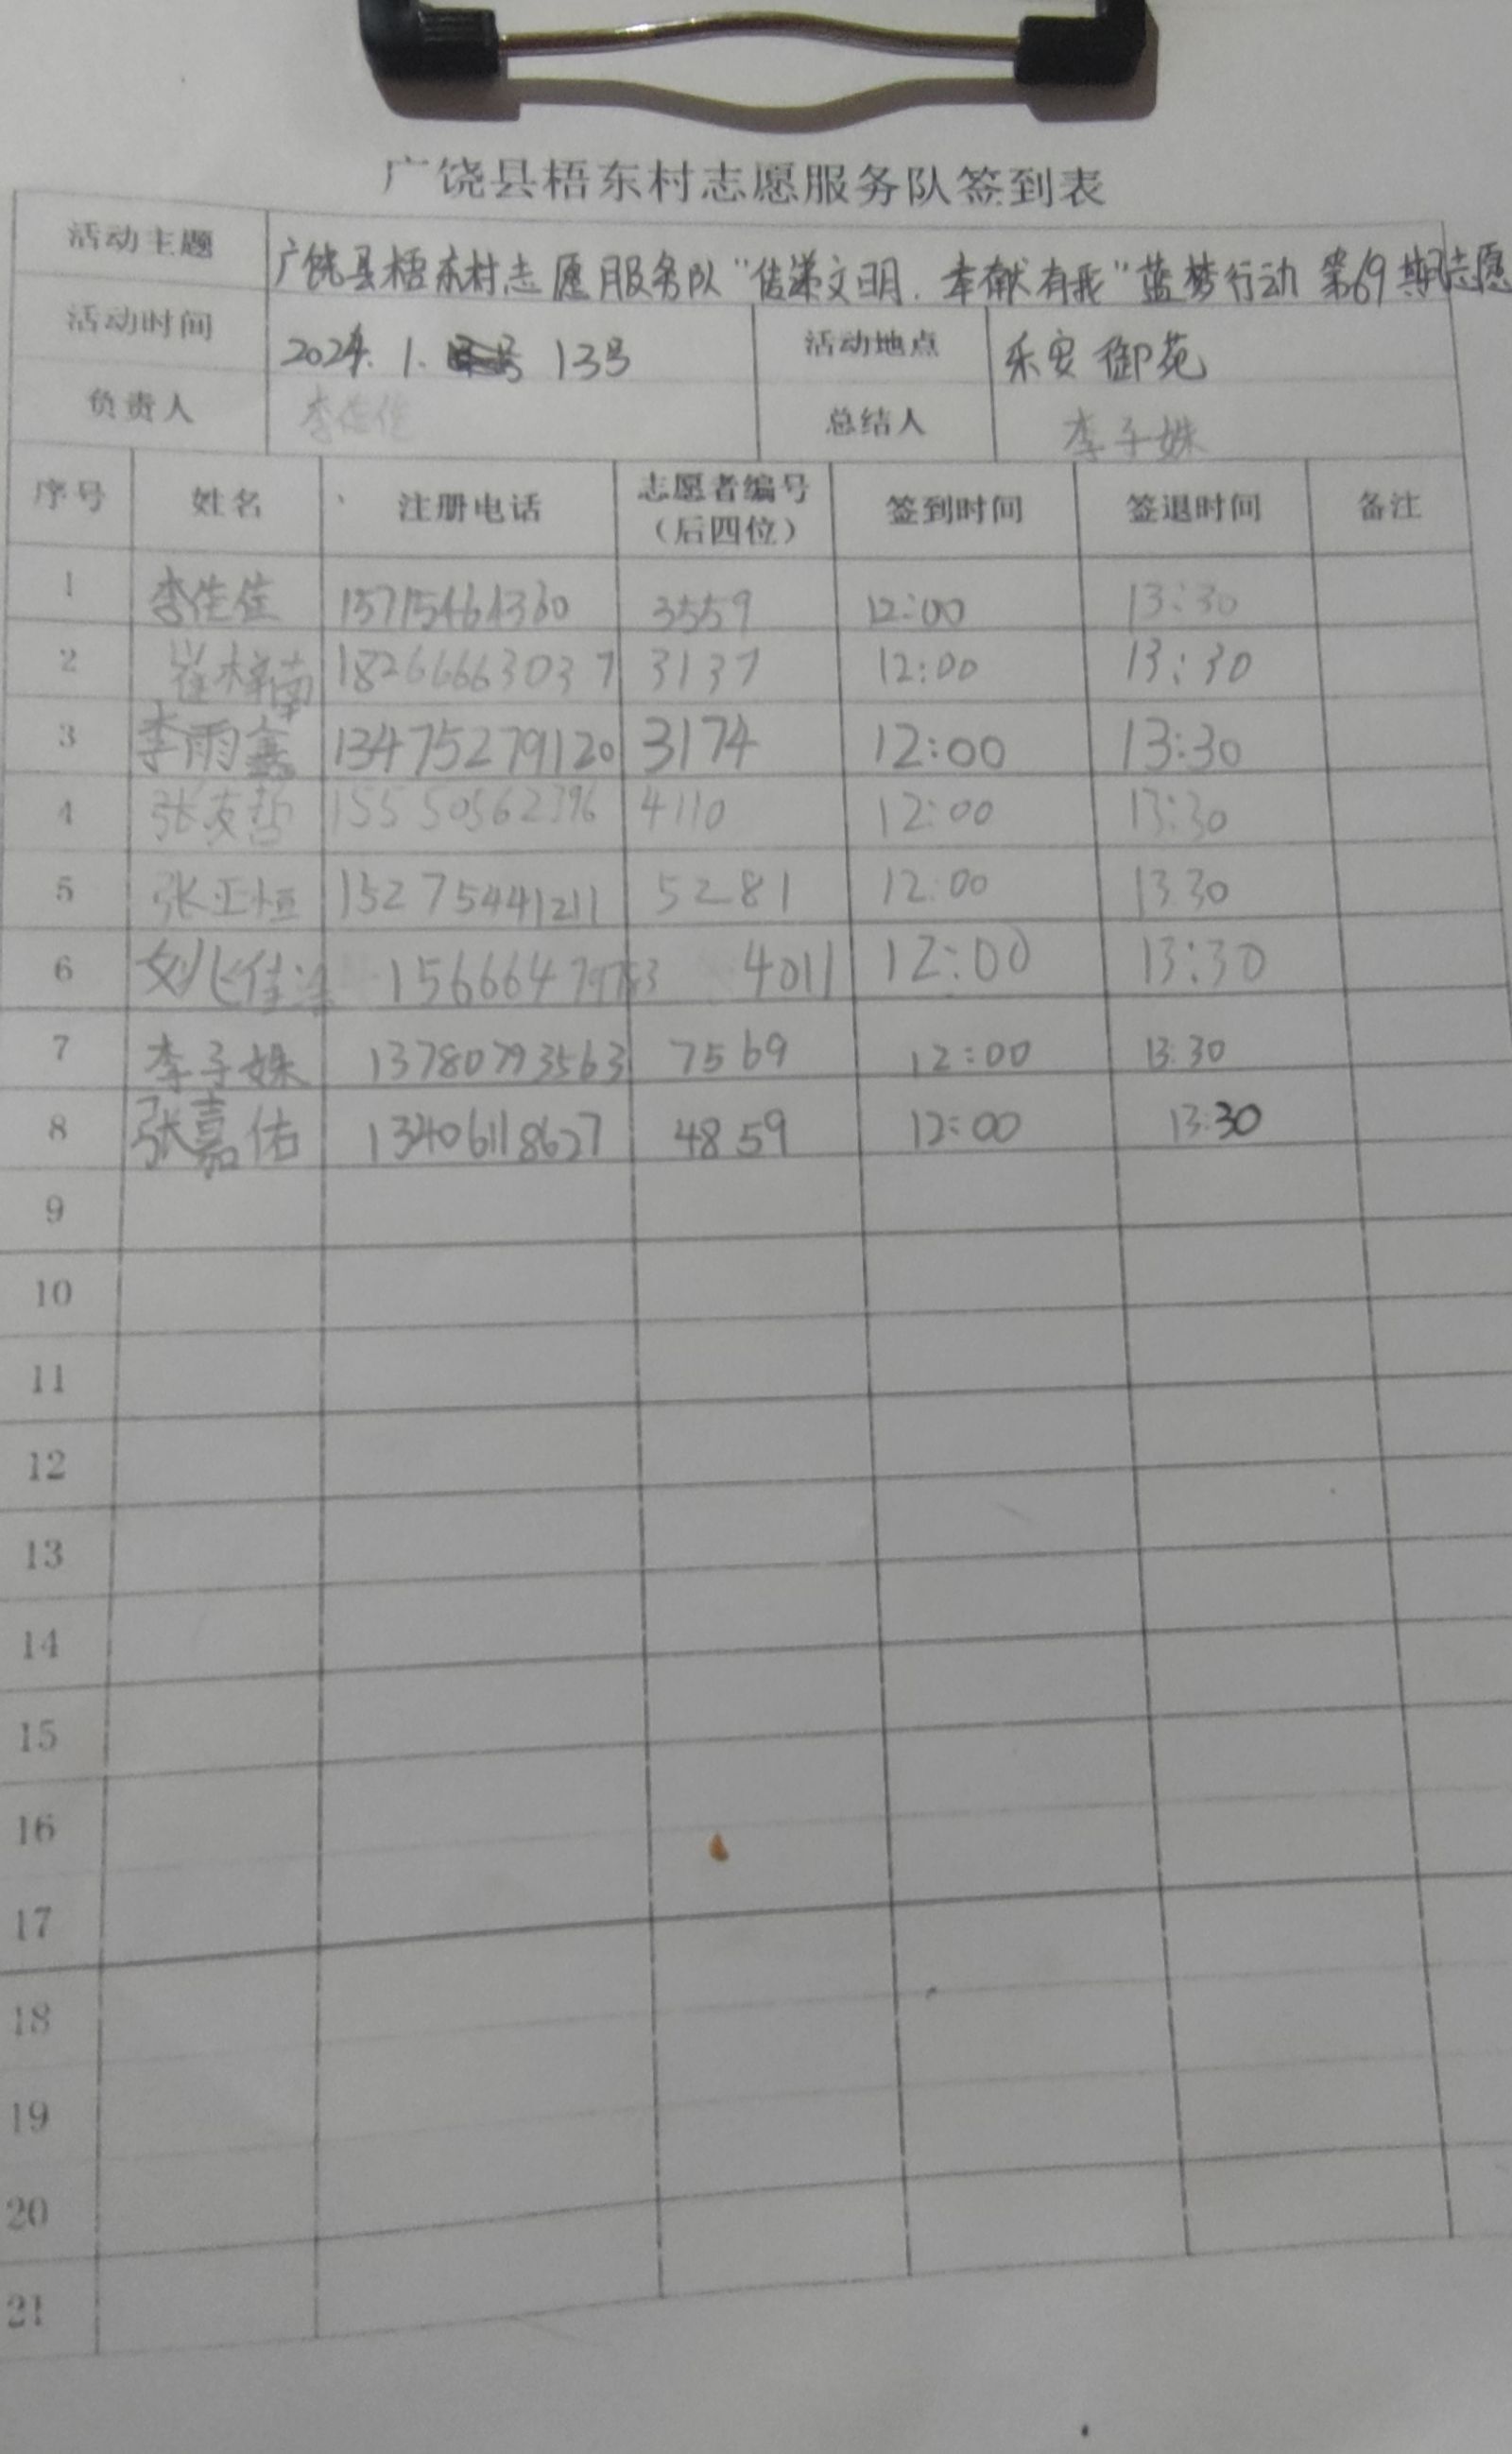 广饶县梧东村志愿服务队签到表
活动主题 广饶县梧东村志愿服务队“传递文明.奉献有我”蓝梦行动 第69期志愿
活动时间 2024. 1. 13号 活动地点 乐安御苑
负责人 李佳佳 总结人 李子姝
序号 姓名 注册电话 志愿者编号（后四位） 签到时间 签退时间 备注
1 李佳佳 15715464360 3559 12:00 13:30
2 崔梓楠 18266663037 3137 12:00 13:30
3 李雨鑫 13475279120 3174 12:00 13:30
4 张友哲 15550562396 4110 12:00 13:30
5 张正恒 15275441211 5281 12:00 13:30
6 4011 12:00 13:30
7 李子姝 13780793563 7569 12:00 13:30
8 张嘉佑 13406118627 4859 12:00 13:30
9
10
11
12
13
14
15
16
17
18
19
20
21